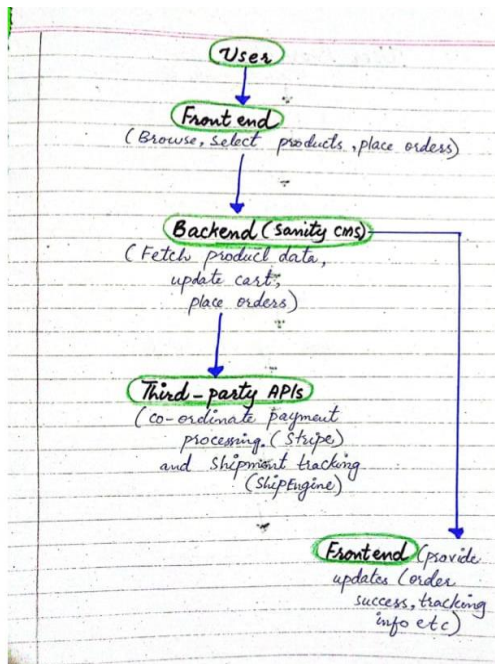 User
Front end
(Browse, select products, place orders)
Backend (sanity cms)
(Fetch product data,
update cart,
place orders)
Third-party APIs
(co-ordinate payment
processing. (Stripe)
and Shipment tracking
(ShipEngine)
Frontend (provide
updates (order
success, tracking
info etc)